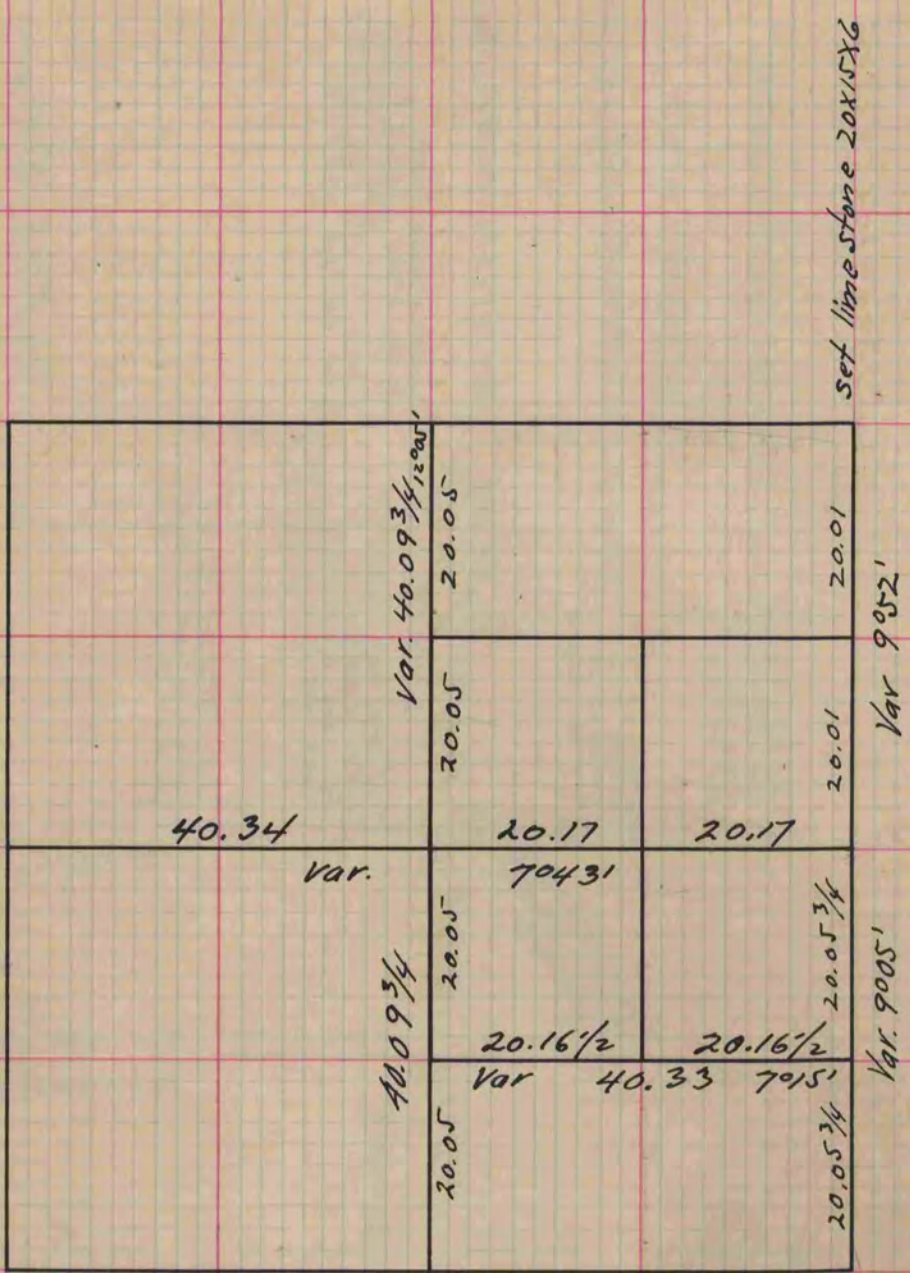 set limestone 20X15X6
Var. 40.09 3/4, 12°05'
20.05
20.01
Var 9°52'
20.05
20.01
40.34
20.17
20.17
Var.
7°43'
40.09 3/4
20.05
20.05 3/4
Var. 9°05'
20.16 1/2
20.16 1/2
Var 40.33 7°15'
20.05
20.05 3/4